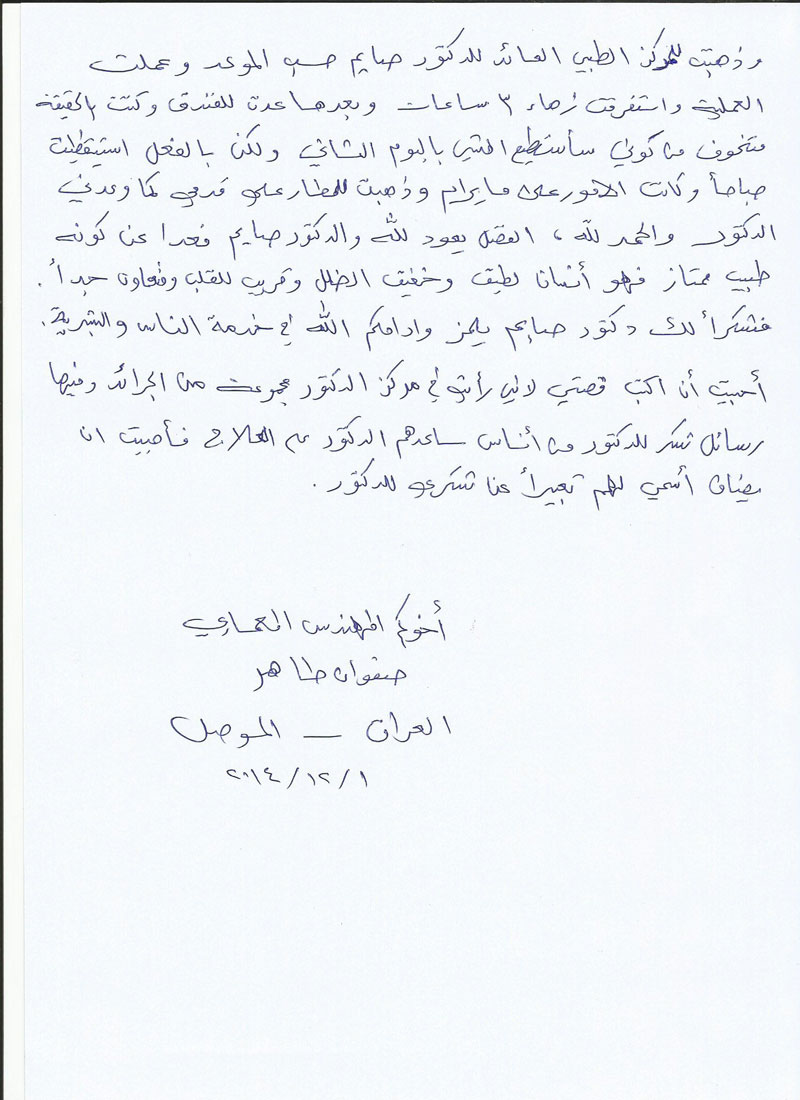 وذهبت للمركز الطبي العائد للدكتور صايم حسب الموعد وعملت
العملية واستغرقت زهاء ٣ ساعات وبعدها عدت للفندق وكنت الحقيقة
متخوف من كوني سأستطيع المشي باليوم الثاني ولكن بالفعل استيقظت
صباحاً وكانت الامور على مايرام وذهبت للمطار على قدمي كما وعدني
الدكتور والحمد لله ، الفضل يعود لله والدكتور صايم فعدا عن كونه
طبيب ممتاز فهو أنسان لطيف وخفيف الظل وقريب للقلب ومتعاون جداً .
فشكراً لك دكتور صايم يلمز وادامكم الله في خدمة الناس والبشرية .
أحببت أن اكتب قصتي لاني رأيت في مركز الدكتور مجموعة من الجرائد وفيها
رسائل شكر للدكتور من أناس ساعدهم الدكتور على العلاج فأحببت ان
يضاف أسمي لهم تعبيراً عن شكري للدكتور .
أخوكم المهندس المعماري
صفوان طاهر
العراق – الموصل
٢٠١٤/١٢/١